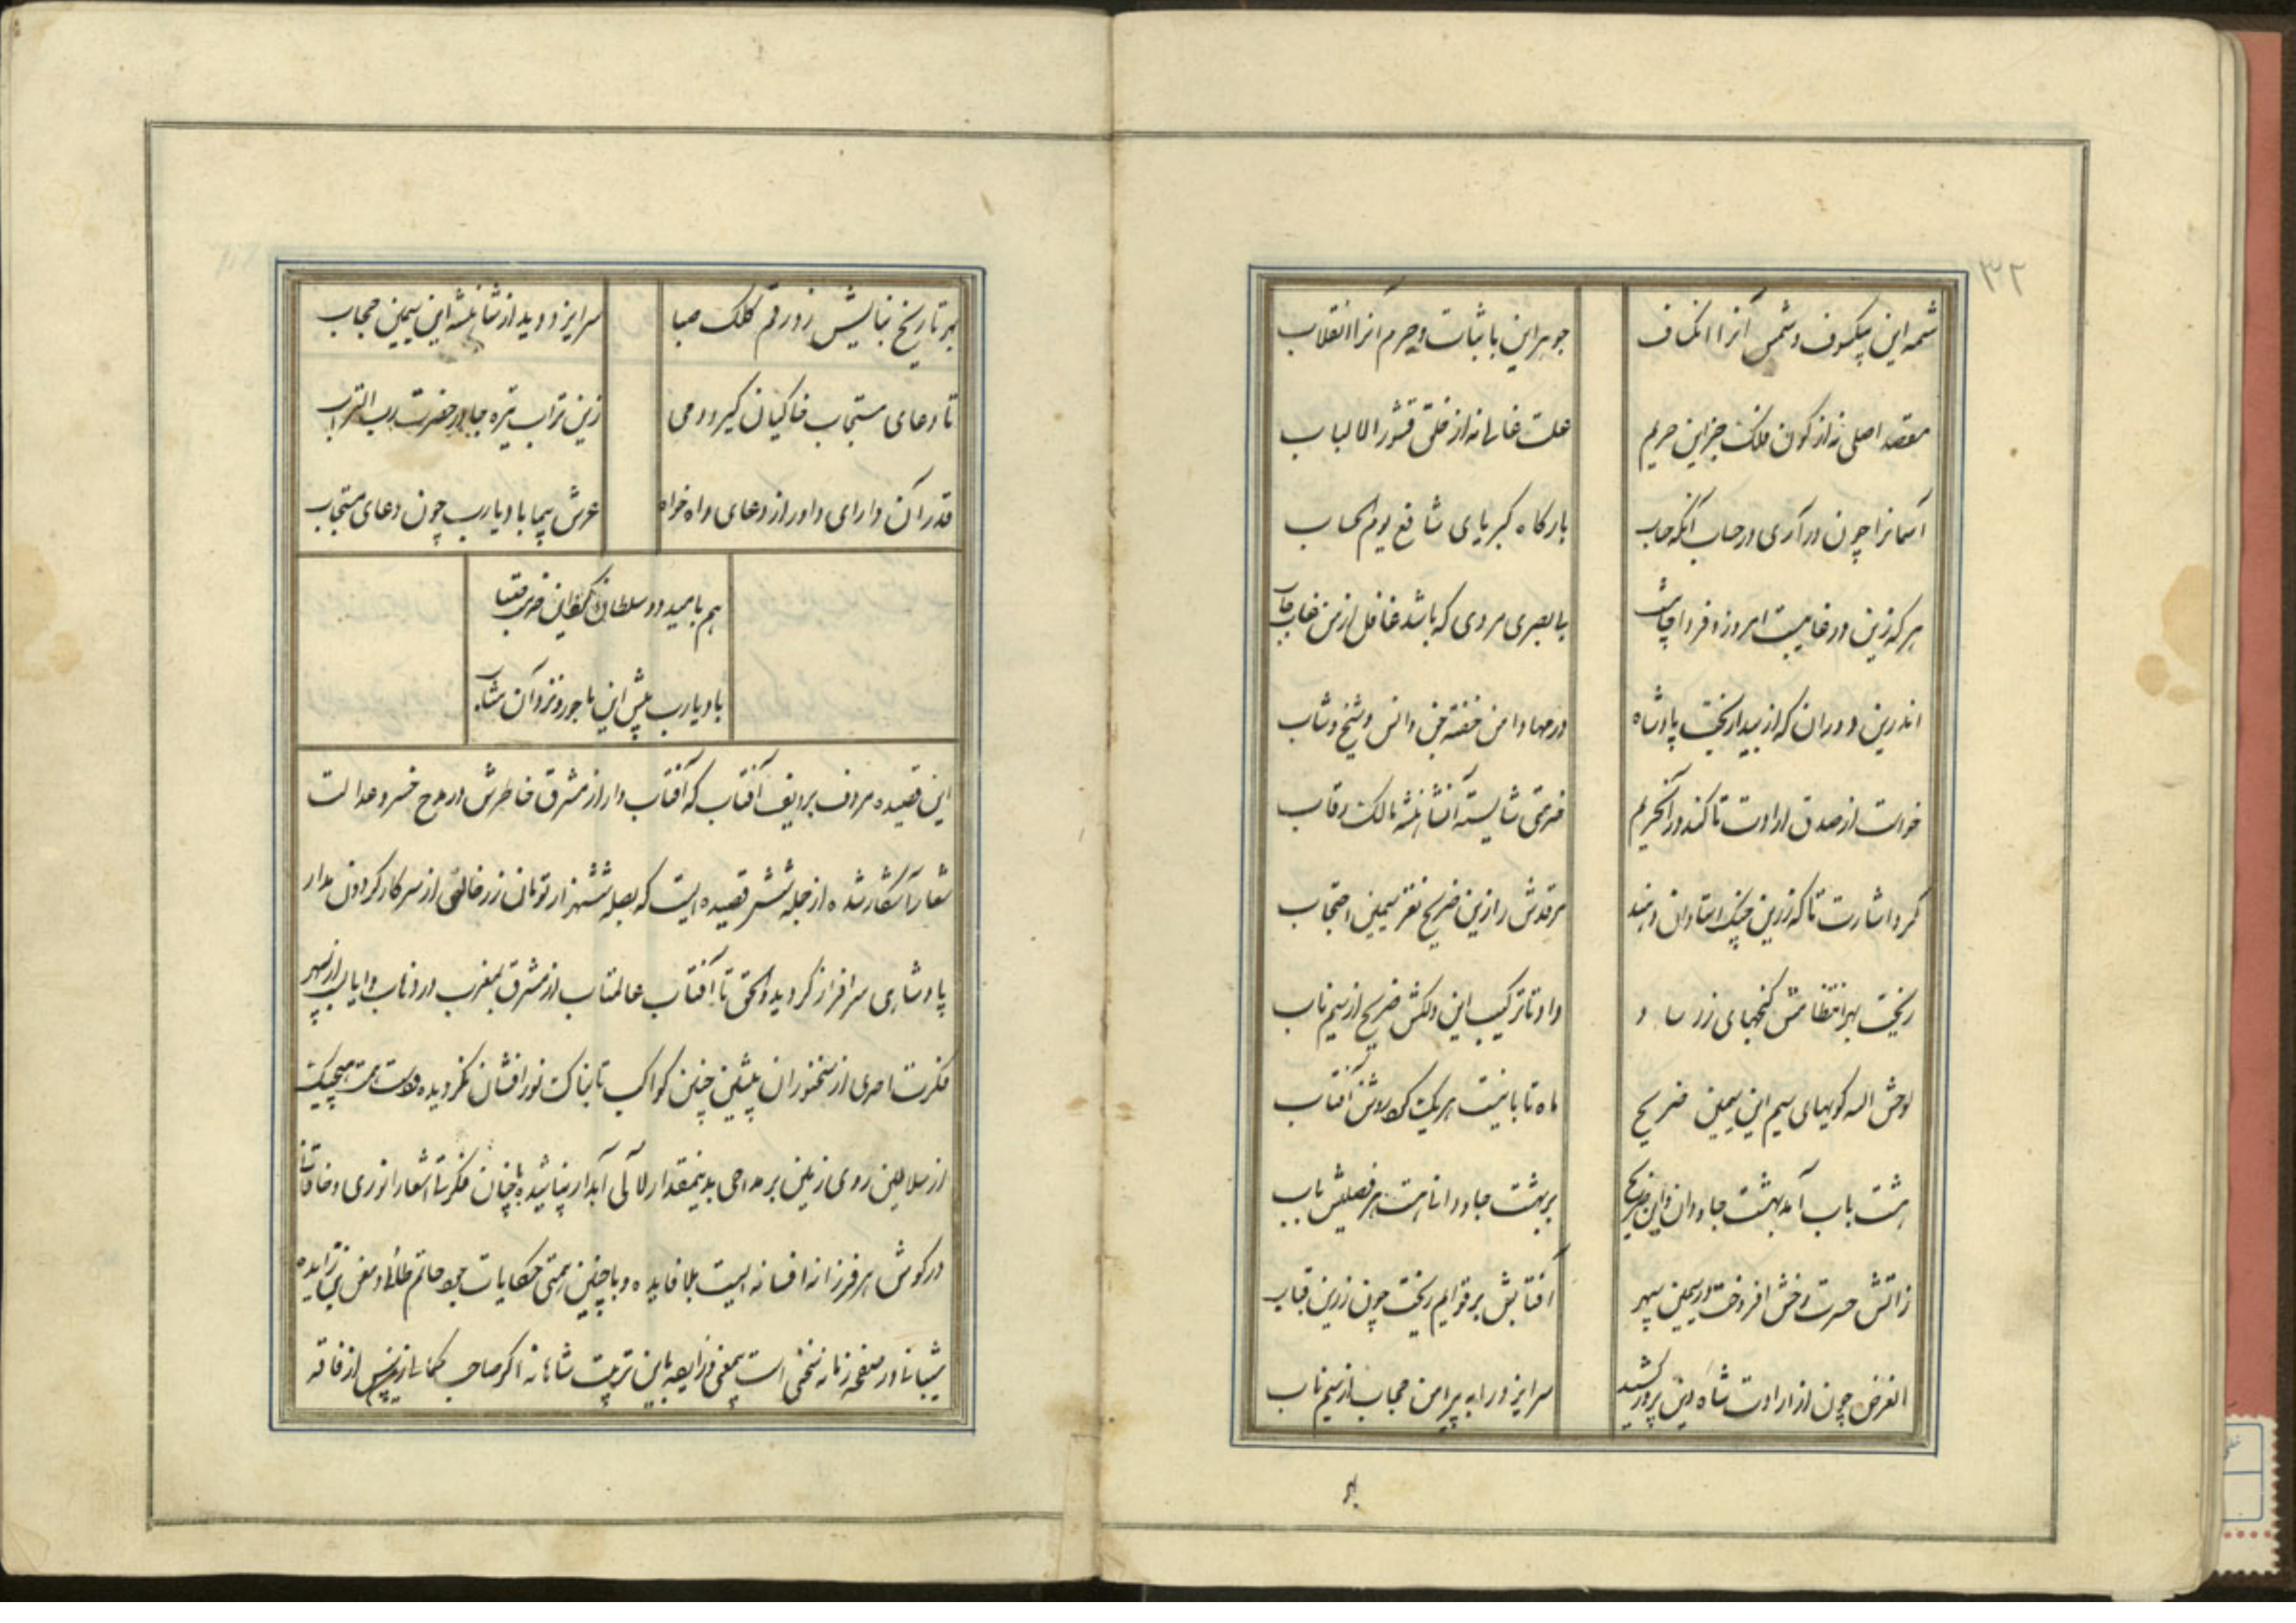 ۳۲
شمه این بیکسوف و شمس آنرا انکساف
جوهر این با ثبات و جرم آنرا انقلاب
مقصد اصلی نه از کون فلک جز این حریم
علت غائی نه از خلق قشور الا لباب
آسمانرا چون در آری در حساب آنکه جناب
بارگاه کبریای شافع یوم الحساب
هر که زین در غایبست امروز و فردا
یا بصیری مردی که باشد غافل از من غاب خاب
اندرین دوران که از بیدار بخت پادشاه
در مهاد امن خفته جن و انس و شیخ و شاب
خواست از صدق ارادت تا کند در آنحریم
خدمتی شایسته آنشاهنشه مالک رقاب
کرد اشارت تا که زرین چنگ استادان دهند
مرقدش را زین ضریح نغز سیمین احتجاب
ریخت بهر انتظامش گنجهای زر ساو
داد تا ترکیب این دلکش ضریح از سیم ناب
لوحش الله گویهای سیم این سیمین ضریح
ماه تابانیست هر یک گه روشن آفتاب
هشت باب آمد بهشت جاودان و این ضریح
بر بهشت جاودانه است هر فصلیش باب
ز آتش حسرت رخش افروخت در سیمین سپهر
آفتابش بر قوایم ریخت چون زرین قباب
الغرض چون از ارادت شاه دین پرور کشید
سر ایزد را به پیرامن حجاب از سیم ناب
بهر
بهر تاریخ بنایش زد رقم کلک صبا
سر ایزد دید از شاهنشه این سیمین حجاب
تا دعای مستجاب خاکیان گیرد همی
زین تراب تیره جا در حضرت رب التراب
قدر آن دارای داور از دعای داد خواه
عرش پیما باد یارب چون دعای مستجاب
هم بامید دو سلطان کاین ضریح
باد یارب پیش این ماجور و نزد آن مثاب
این قصیده معروف بردیف آفتاب که آفتاب وار از مشرق خاطرش در مدح خسرو عدالت
شعار آشکار شده از جمله شش قصیده ایست که بصله ششهزار تومان زر خالص از سرکار گردون مدار
پادشاهی سرافراز گردیده و الحق تا آفتاب عالمتاب از مشرق بمغرب در ذهاب و ایاب از سپهر
فکرت احدی از سخنوران پیشین چنین کواکب تابناک نور افشان نگردیده و دست همت هیچیک
از سلاطین روی زمین بر مداحی بدینمقدار لآلی آبدار نپاشیده با چنان فکرتها اشعار انوری و خاقانی
در گوش هر فرزانه افسانه ایست بلا فایده و با چنین همتی حکایات جود حاتم طائی و معن بن زایده
شیبانی در صفحه زمانه سخنی است بیمعنی و زایده باین تربیت شاهانه اگر صاحب کمالی از پس از فاقه